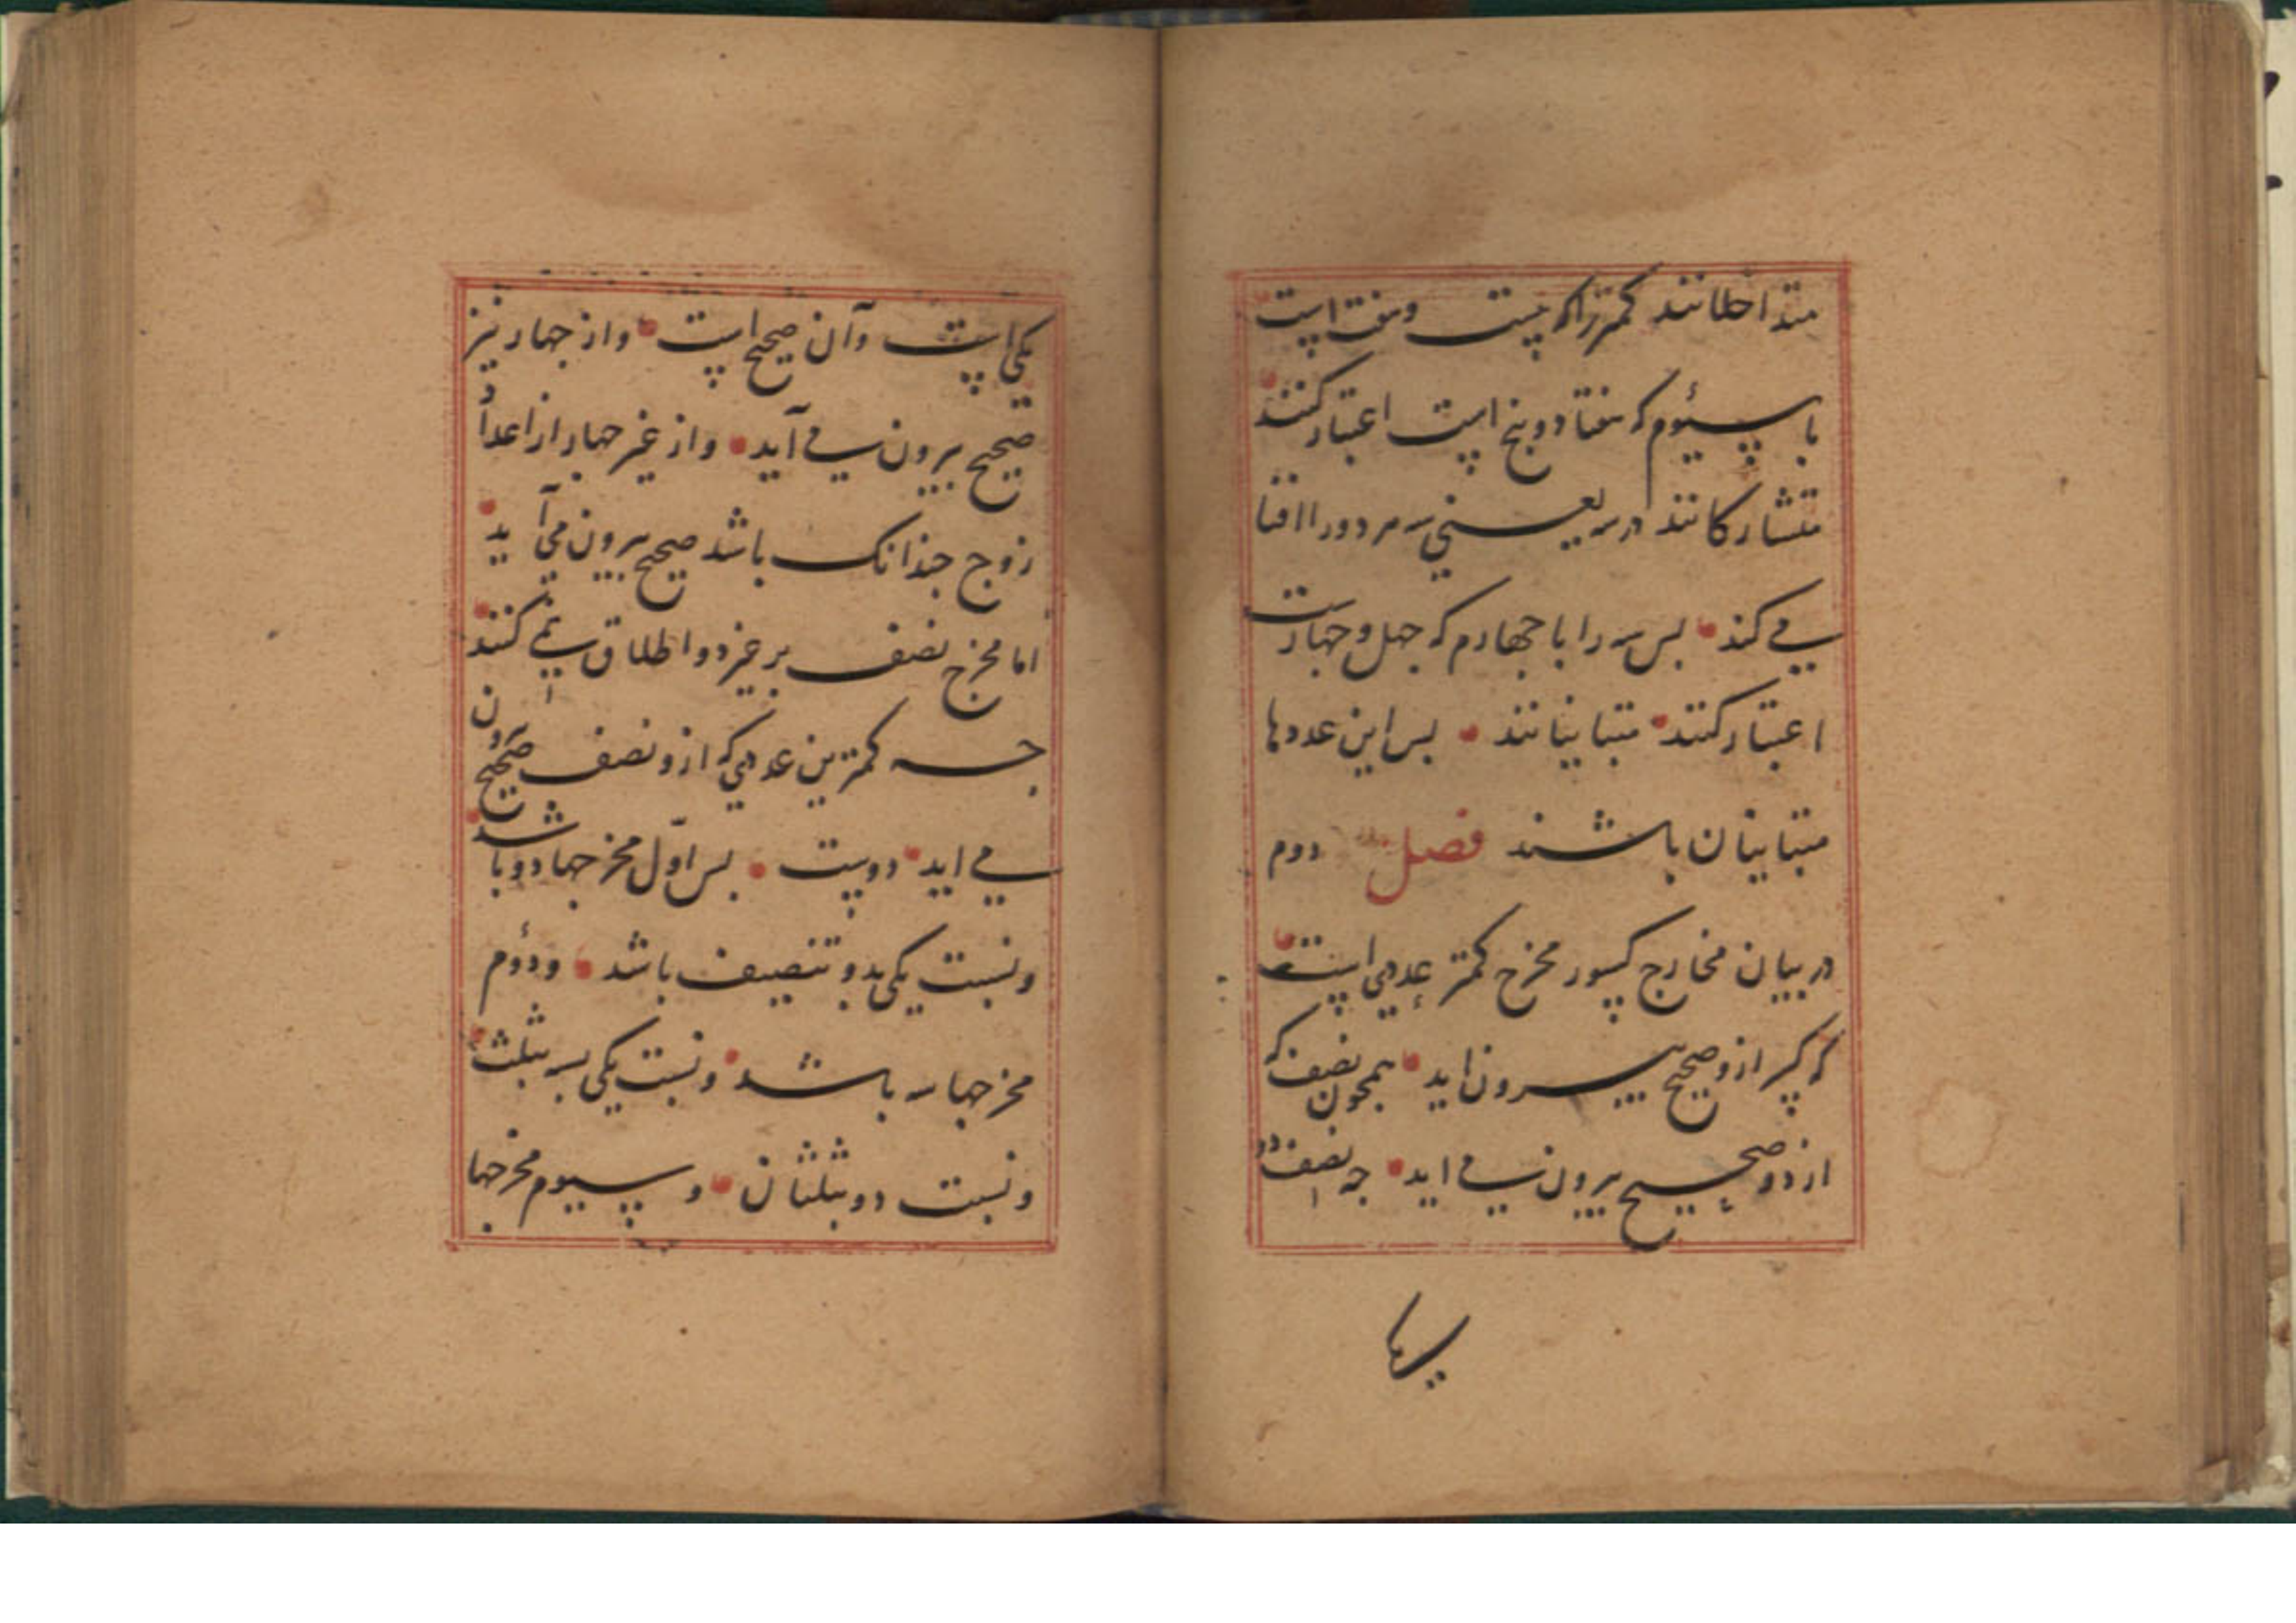 متداخلانند کمتر را که بیست و هفت است
با سیٔوم که هفتاد و پنج است اعتبار کنند
متشارکانند در سه یعنی سه هر دو را افنا
می کند پس سه را با چهارم که چهل و چهارست
اعتبار کنند متباینانند پس این عددها
متباینان باشند فصل دوم
در بیان مخارج کسور مخرج کمتر عددی است
که کسر ازو صحیح بیرون اید همچون نصف که
از دو صحیح بیرون می اید چه نصف دو
یکی است و آن صحیح است و از جهار نیز
صحیح بیرون می آید و از غیر جهار از اعداد
زوج جندانک باشد صحیح بیرون می آید
اما مخرج نصف بر غیر دو اطلاق نمی کنند
جه کمترین عددی که ازو نصف صحیح بیرون
می اید دوست پس اوّل مخرجها دو باشد
و نسبت یکی بدو تنصیف باشد و دؤم
مخرجها سه باشد و نسبت یکی بسه بثلث
و نسبت دو بثلثان و سیوم مخرجها